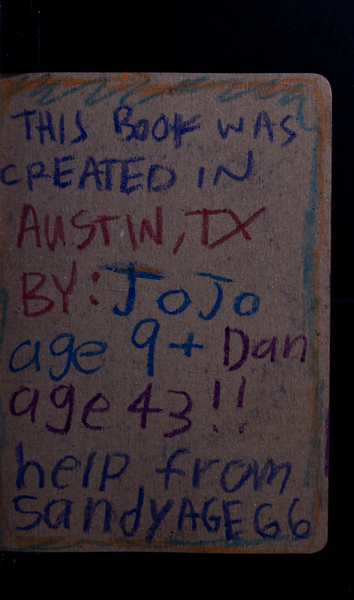 THIS BOOK WAS
CREATED IN
AUSTIN, TX
BY: JoJo
age 9 + Dan
age 43!!
help from
sandy AGE 66